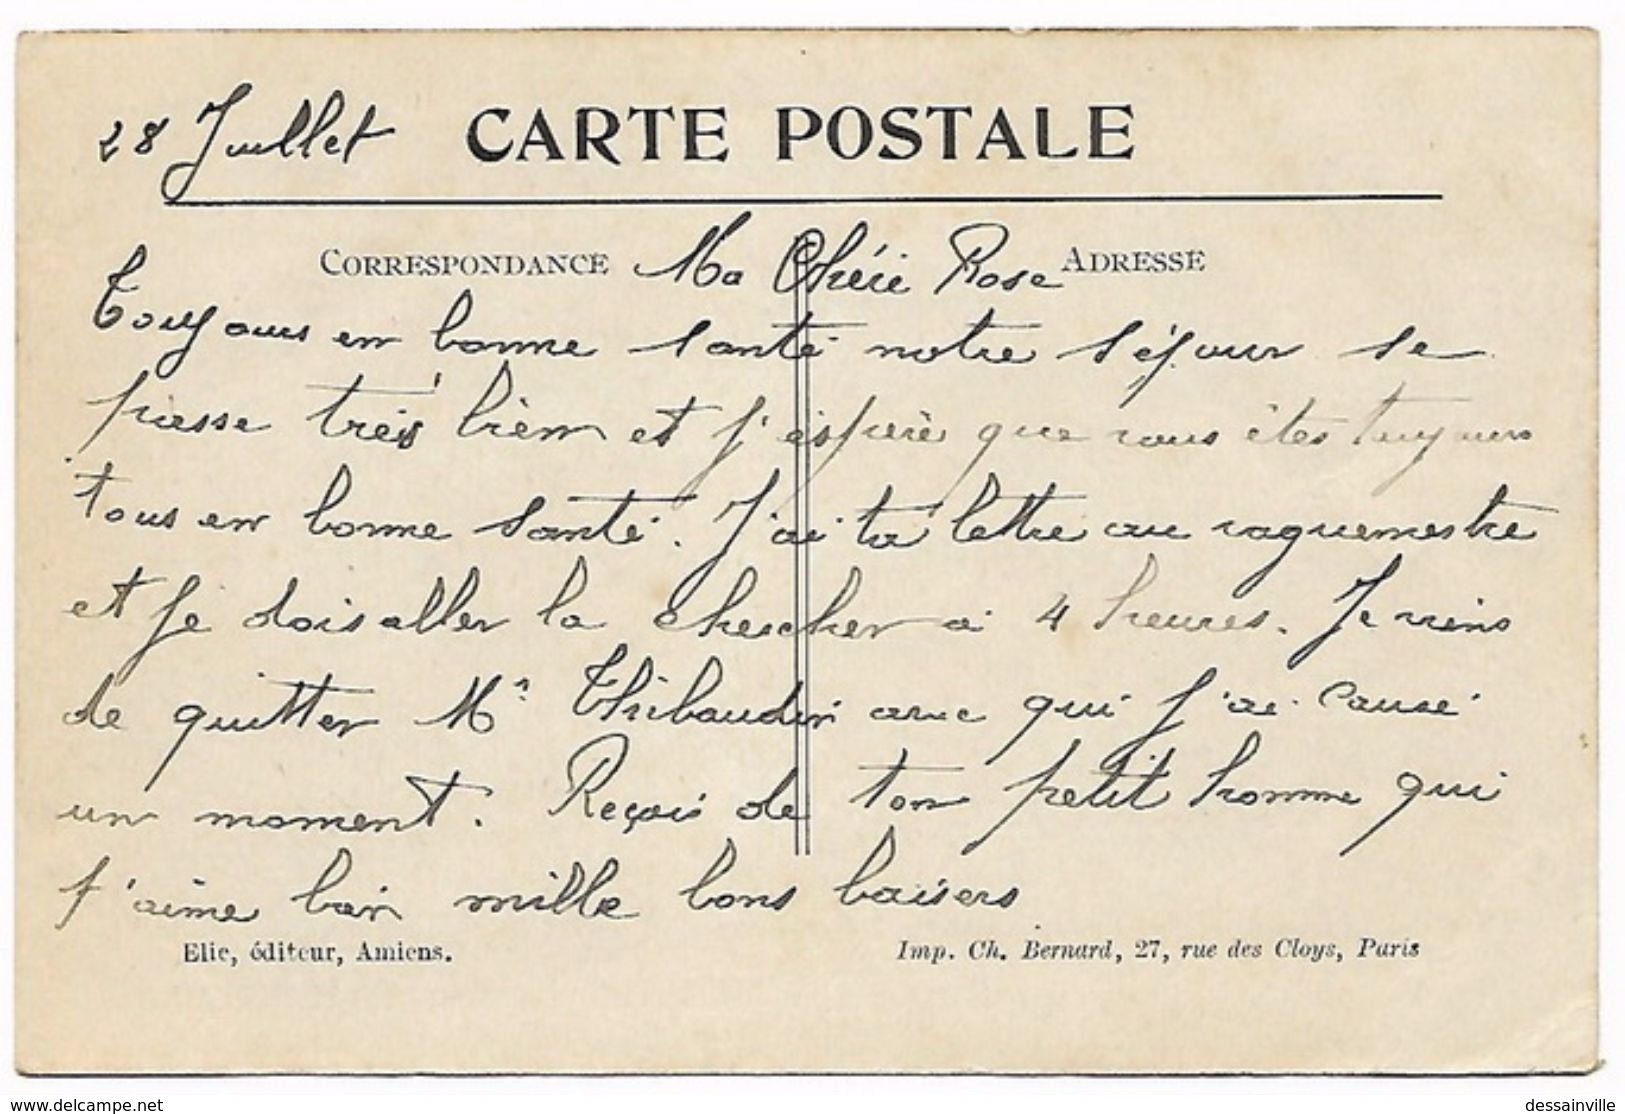 28 Juillet CARTE POSTALE
CORRESPONDANCE Ma Chérie Rose ADRESSE
Toujours en bonne santé notre séjour se
passe très bien et j'espère que vous êtes toujours
tous en bonne santé. J'ai ta lettre au vaguemestre
et je dois aller la chercher à 4 heures. Je viens
de quitter Mr Thibaudin avec qui j'ai causé
un moment. Reçois de ton petit homme qui
t'aime bien mille bons baisers
Elie, éditeur, Amiens. Imp. Ch. Bernard, 27, rue des Cloys, Paris
www.delcampe.net dessainville